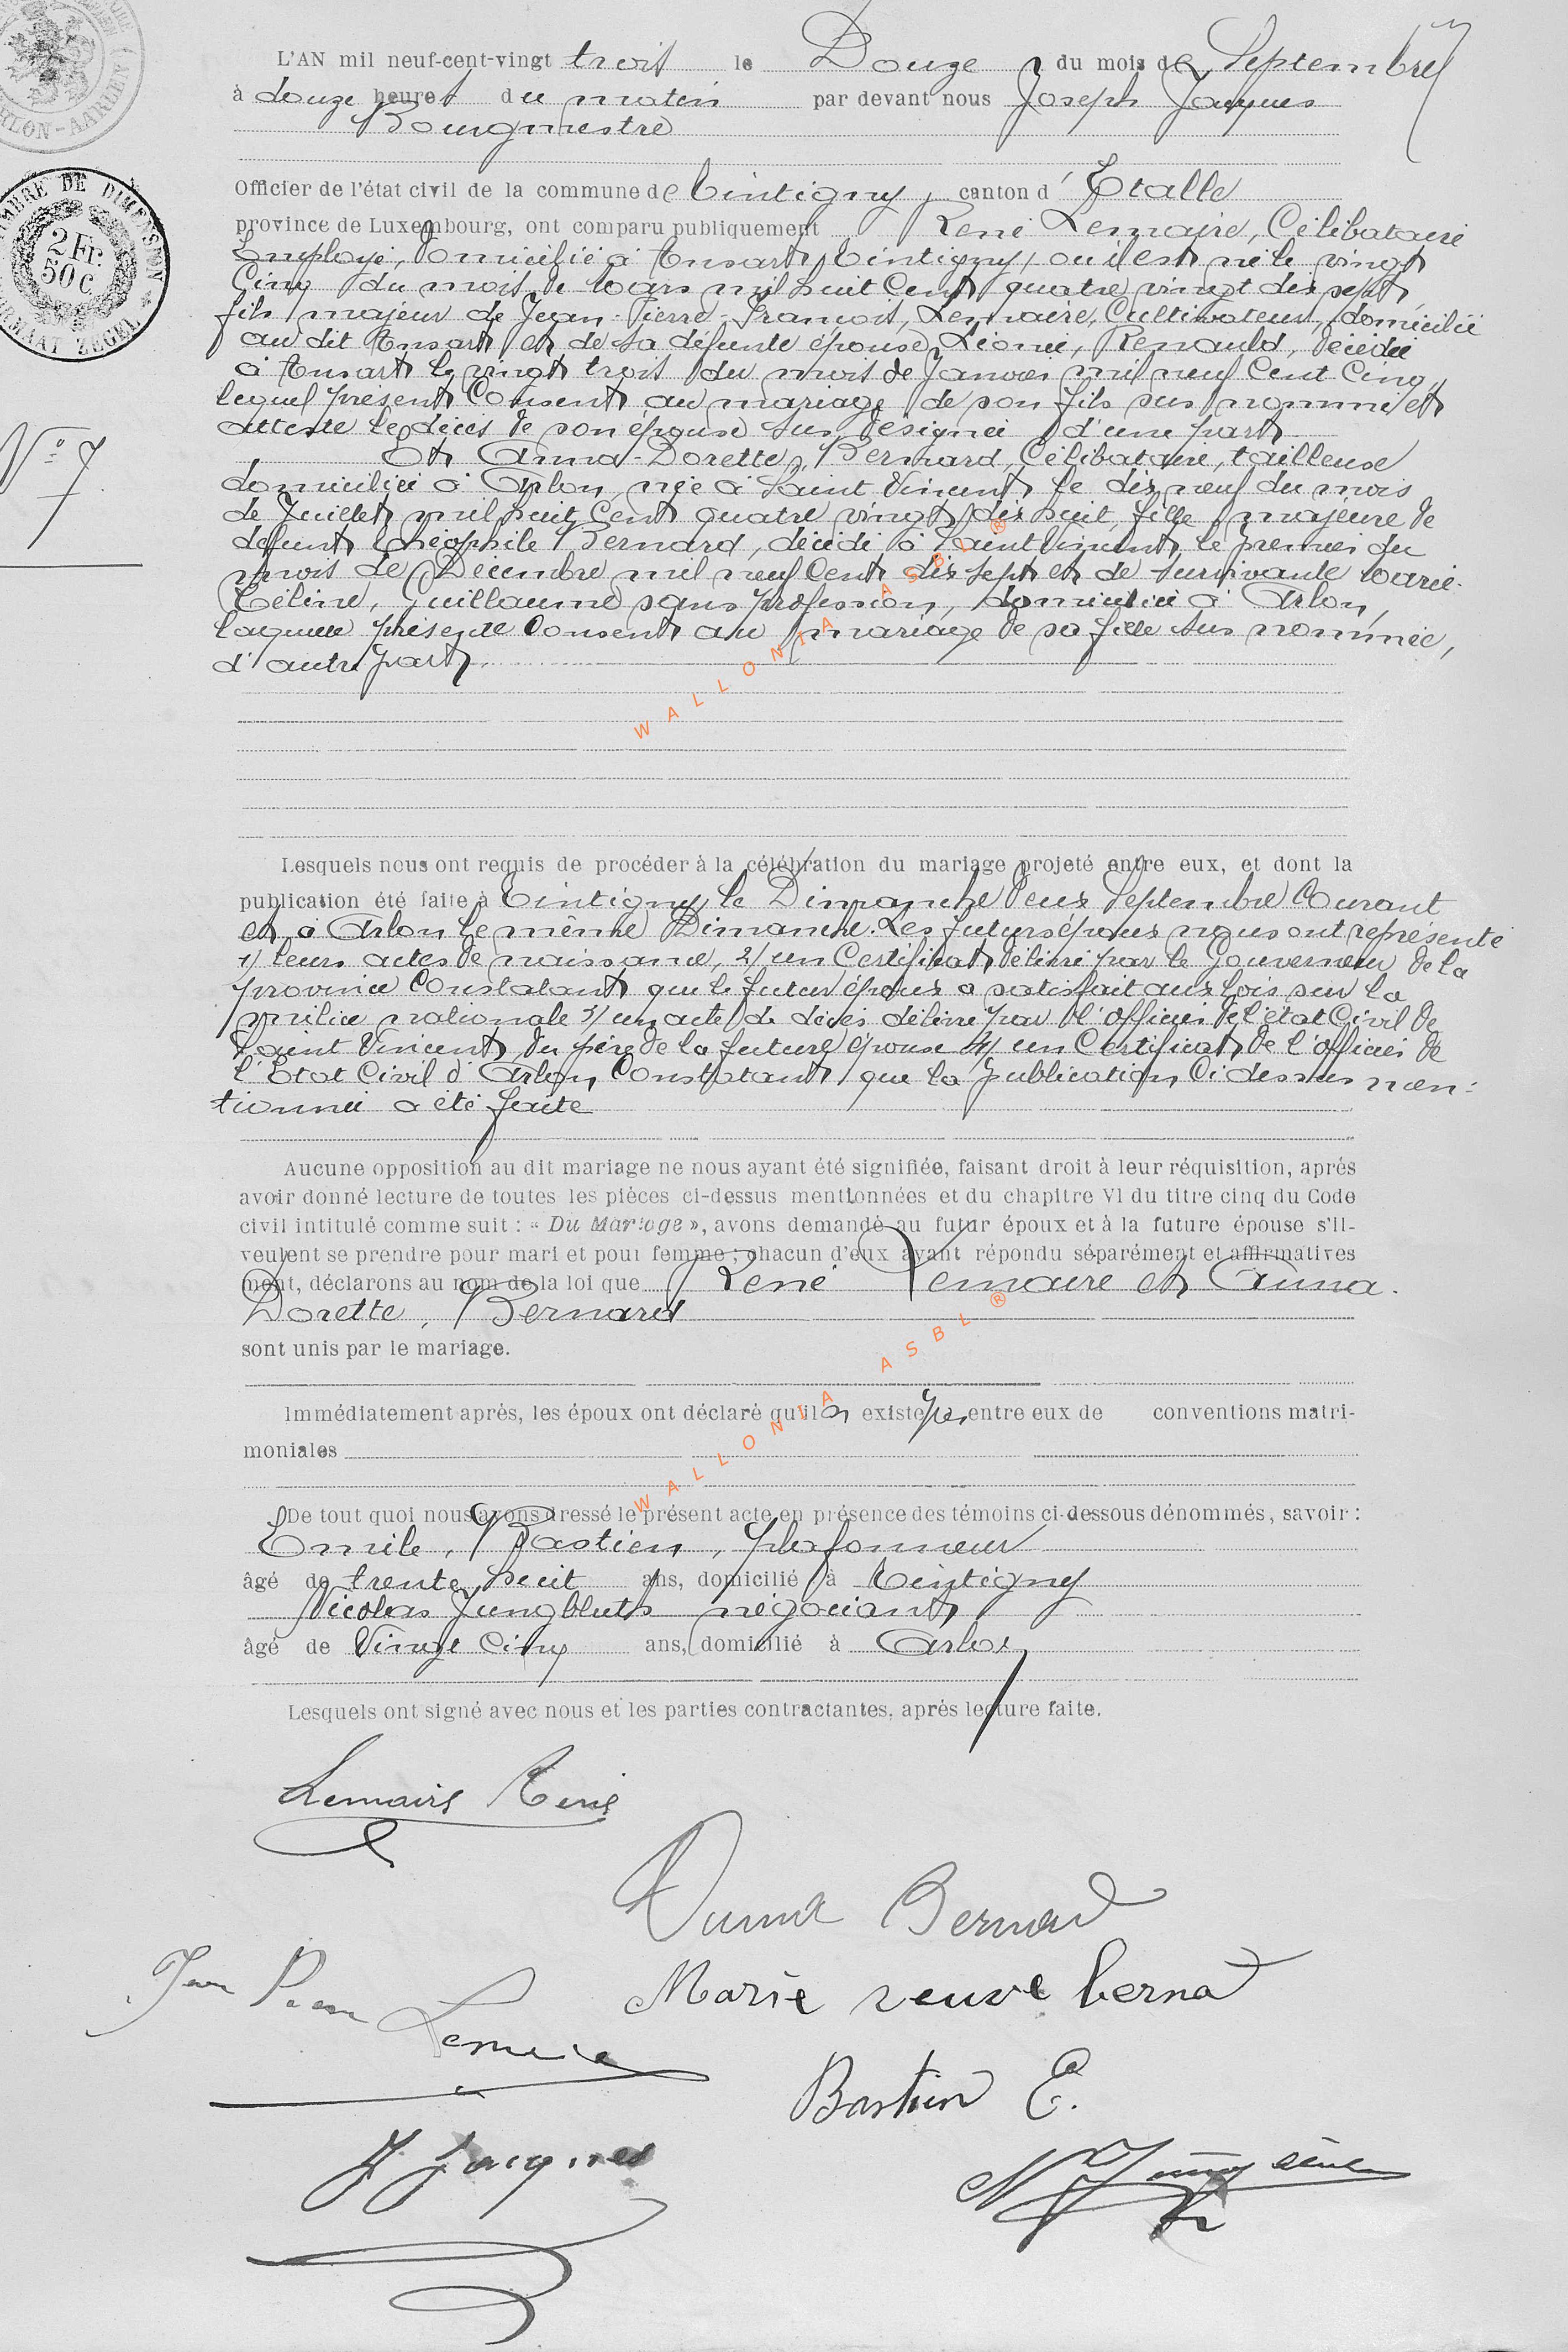 L'AN mil neuf-cent-vingt trois le Douze du mois de Septembre
à douze heures du matin par devant nous Joseph Jacques
Bourgmestre
Officier de l'état civil de la commune de Tintigny, canton d' Etalle
province de Luxembourg, ont comparu publiquement René Lemaire, Célibataire
Employé, domicilié à Ansart, Tintigny, où il est né le vingt
Cinq du mois de Mars mil huit Cent quatre vingt dix sept,
fils majeur de Jean-Pierre-François, Lemaire, Cultivateur, domicilié
au dit Ansart et de sa défunte épouse, Léonie, Renauld, décédée
à Ansart le vingt trois du mois de Janvier mil neuf Cent Cinq,
lequel présent Consent au mariage de son fils sus nommé et
atteste le décès de son épouse sus désignée d'une part
Et Anna-Dorette, Bernard, Célibataire, tailleuse
domiciliée à Arlon, née à Saint Vincent le dix neuf du mois
de Juillet mil huit Cent quatre vingt dix huit, fille majeure de
défunt Théophile Bernard, décédé à Saint Vincent, le premier du
mois de Décembre mil neuf Cent dix sept et de survivante Marie-
Céline, Guillaume sans profession, domiciliée à Arlon,
laquelle présente Consent au mariage de sa fille sus nommée,
d'autre part.
Lesquels nous ont requis de procéder à la célébration du mariage projeté entre eux, et dont la
publication été faite à Tintigny le Dimanche deux Septembre Courant
et à Arlon le même Dimanche. Les futurs époux nous ont représenté
1/ leurs actes de naissance, 2/ un Certificat délivré par le Gouverneur de la
province Constatant que le futur époux a satisfait aux lois sur la
milice nationale 3/ un acte de décès délivré par l'officier de l'état Civil de
Saint Vincent, du père de la future épouse 4/ un Certificat de l'officier de
l'Etat Civil d'Arlon, Constatant que la publication Ci dessus men-
tionnée a été faite
Aucune opposition au dit mariage ne nous ayant été signifiée, faisant droit à leur réquisition, après
avoir donné lecture de toutes les pièces ci-dessus mentionnées et du chapitre VI du titre cinq du Code
civil intitulé comme suit : « Du Mariage », avons demandé au futur époux et à la future épouse s'il-
veulent se prendre pour mari et pour femme ; chacun d'eux ayant répondu séparément et affirmatives
ment, déclarons au nom de la loi que René Lemaire et Anna-
Dorette, Bernard
sont unis par le mariage.
Immédiatement après, les époux ont déclaré qu'il n'existe pas entre eux de conventions matri-
moniales
De tout quoi nous avons dressé le présent acte en présence des témoins ci-dessous dénommés, savoir :
Emile, Bastien, plafonneur
âgé de trente huit ans, domicilié à Tintigny
Nicolas Jungbluth négociant
âgé de Vingt Cinq ans, domicilié à Arlon
Lesquels ont signé avec nous et les parties contractantes, après lecture faite.
Lemaire René
Anna Bernard
Jean Pierre Lemaire
Marie veuve berna
Bastien E.
J Jacques
N°
7
TIMBRE DE DIMENSION
2 Fr.
50 c.
ZEGEL
ARLON-AARLEN
WALLONIA ASBL ®
WALLONIA ASBL ®